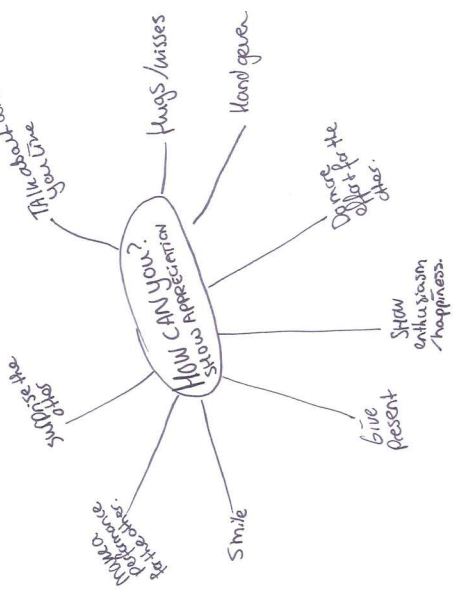 HOW CAN YOU?
SHOW APPRECIATION
TALK about
you like
Hugs/kisses
Hand geven
Do more
effort for the
other.
SHOW
enthusiasm
/happiness.
Give
Present
Smile
performance
to the other.
Surprise the
other